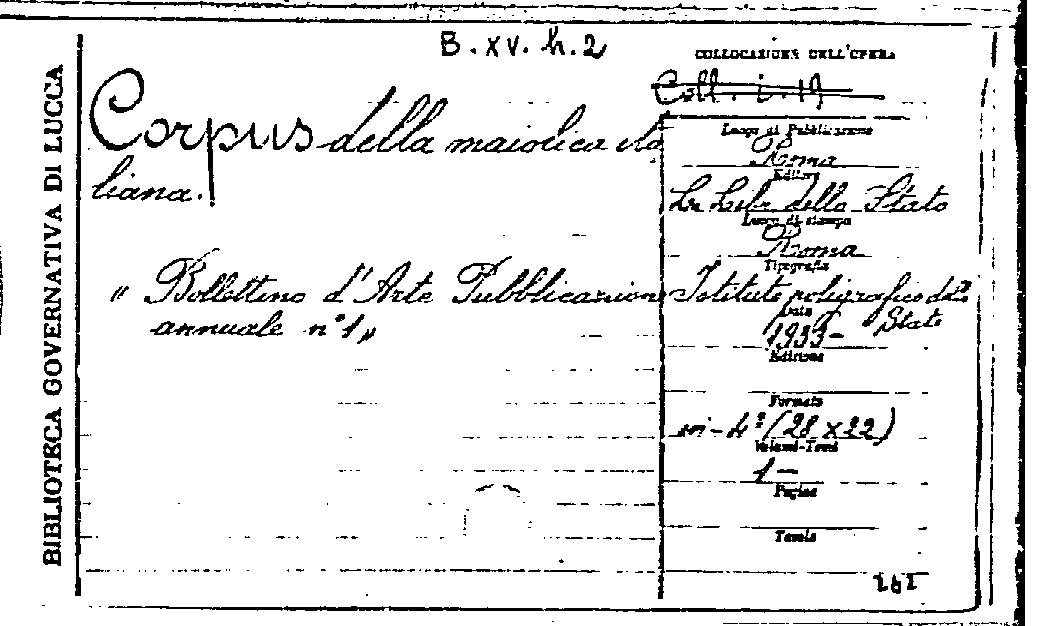 B. XV. h. 2
COLLOCAZIONE DELL'OPERA
Coll. i. 19
BIBLIOTECA GOVERNATIVA DI LUCCA
Corpus della maiolica ita
liana.
" Bollettino d'Arte Pubblicazione
annuale n° 1 "
Luogo di Pubblicazione
Roma
Editore
La Libr. dello Stato
Luogo di stampa
Roma
Tipografia
Istituto poligrafico dello
Stato
Data
1933-
Edizione
Formato
in-4° (28 x 22)
Volumi-Tomi
1-
Pagine
Tavole